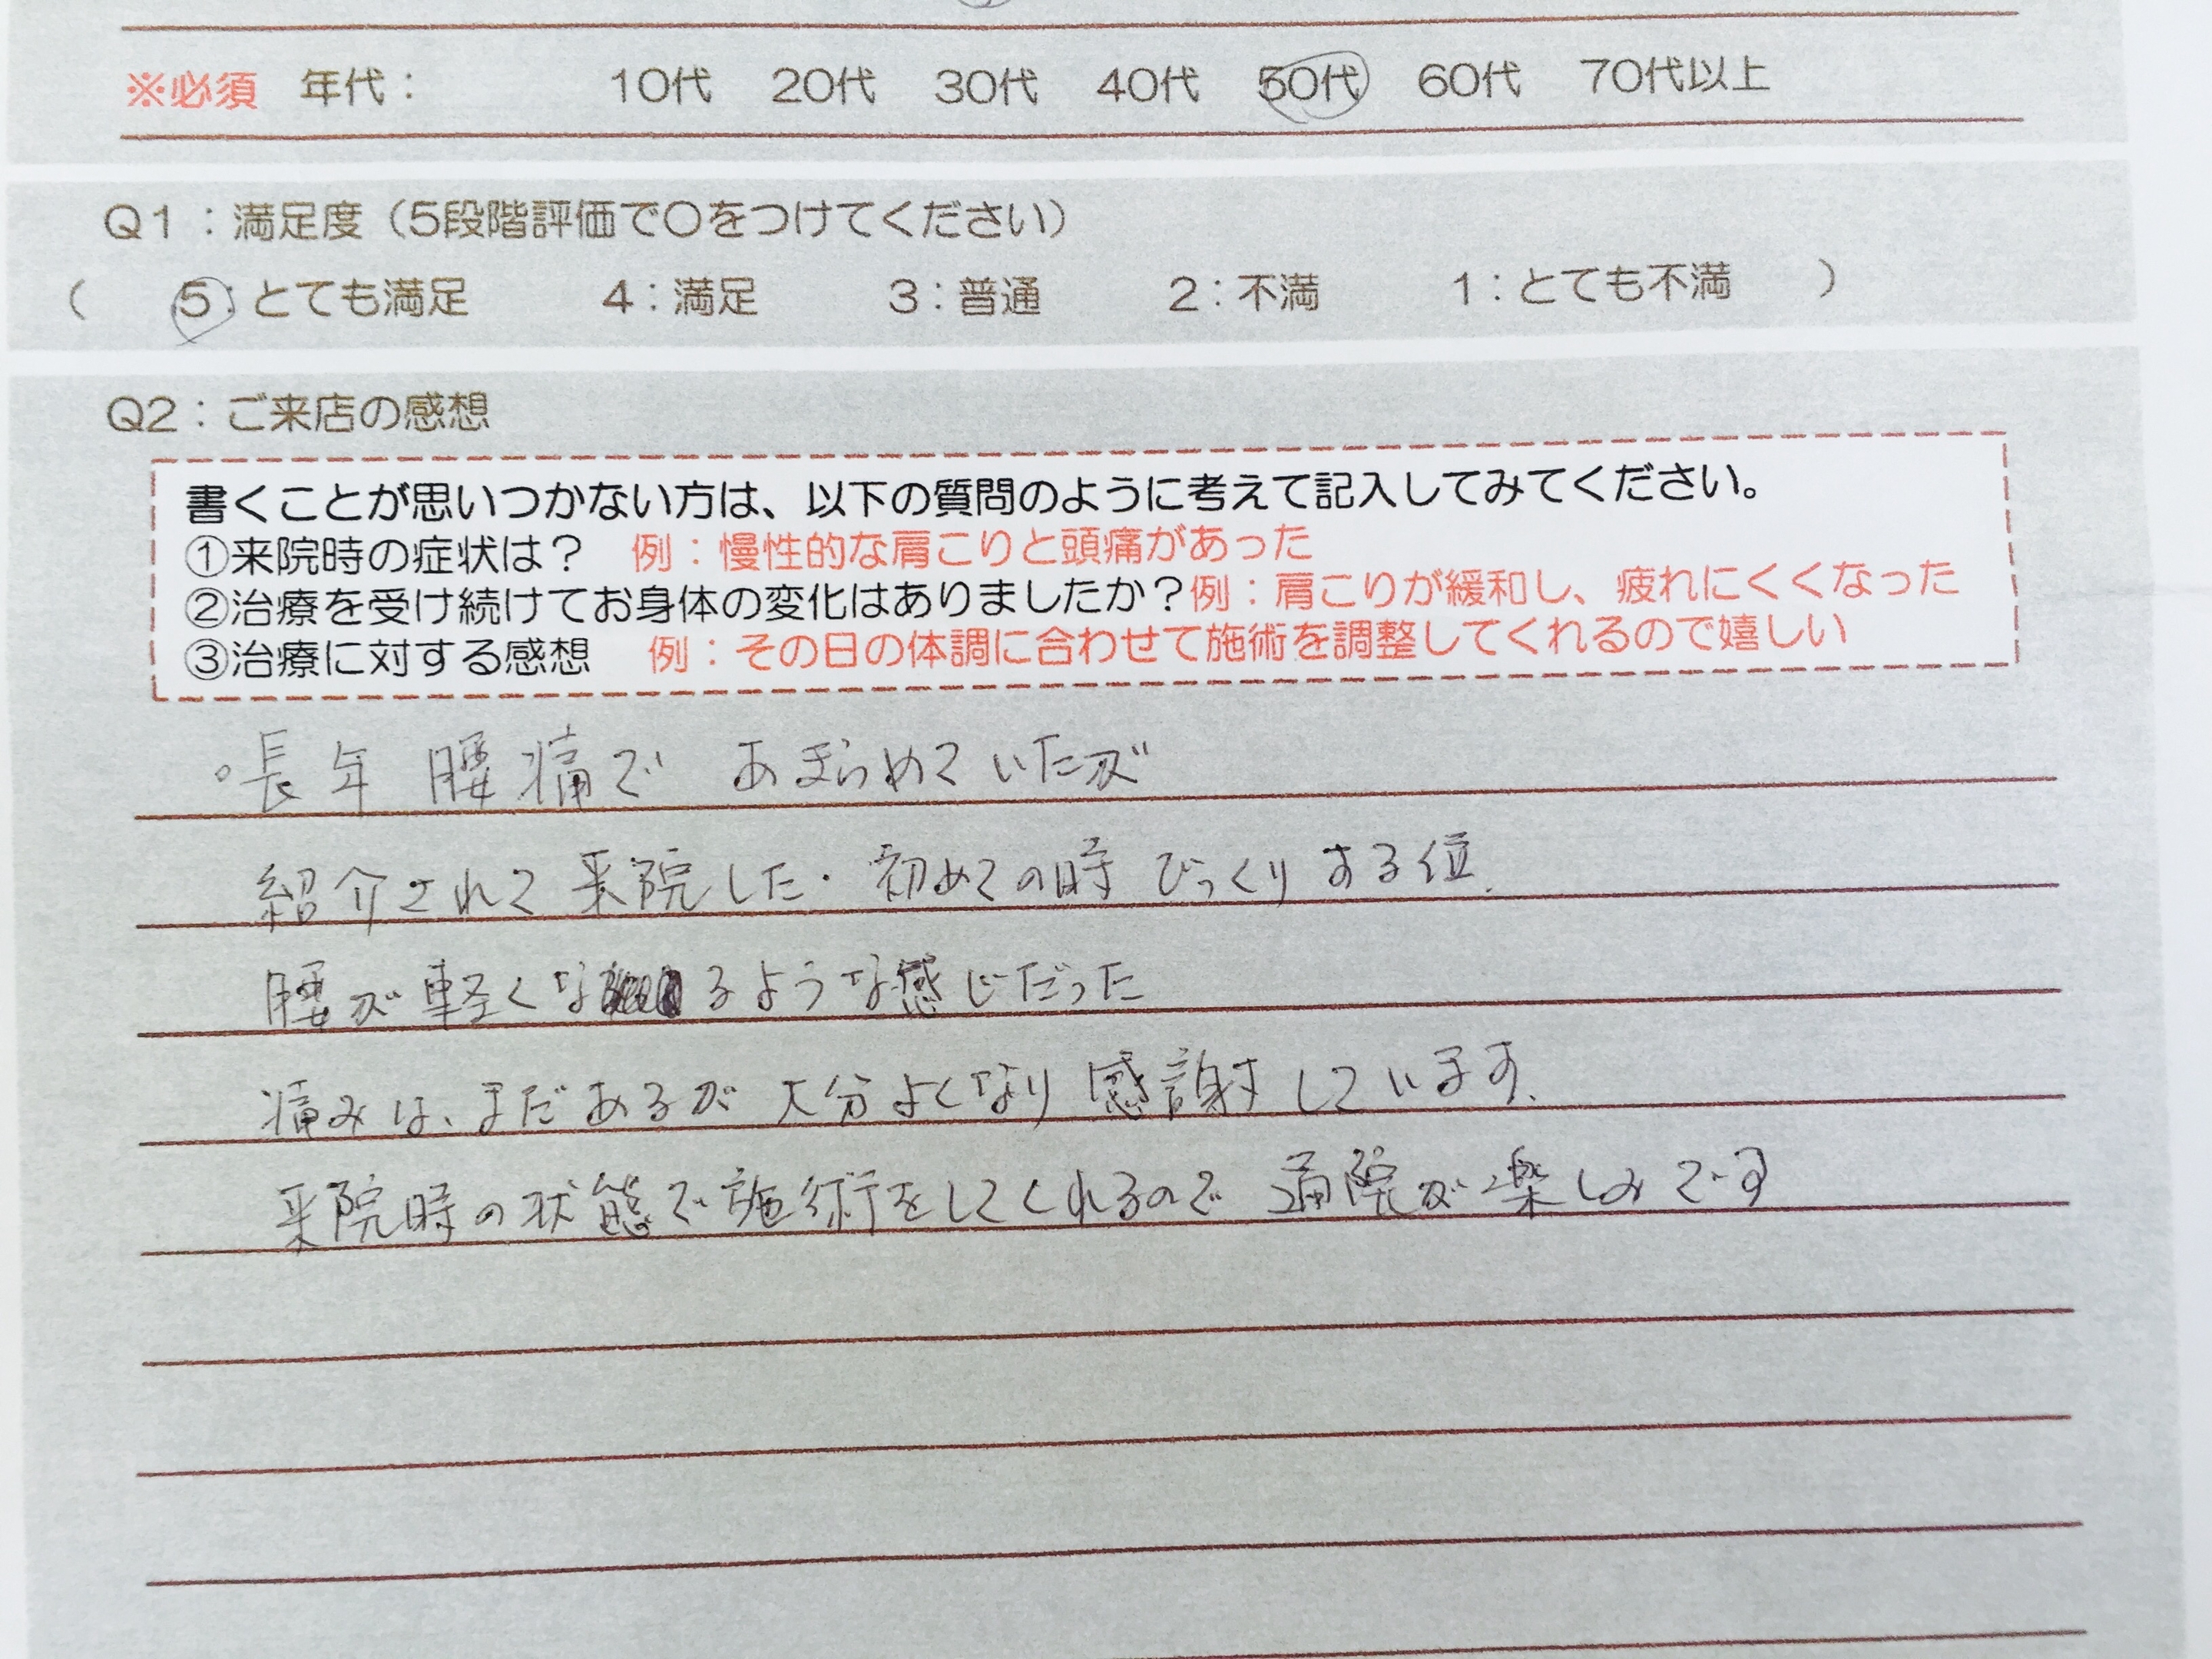 ※必須 年代： 10代 20代 30代 40代 50代 60代 70代以上
Q1：満足度（5段階評価で〇をつけてください）
（ 5：とても満足 4：満足 3：普通 2：不満 1：とても不満 ）
Q2：ご来店の感想
書くことが思いつかない方は、以下の質問のように考えて記入してみてください。
①来院時の症状は？ 例：慢性的な肩こりと頭痛があった
②治療を受け続けてお身体の変化はありましたか？例：肩こりが緩和し、疲れにくくなった
③治療に対する感想 例：その日の体調に合わせて施術を調整してくれるので嬉しい
。長年 腰痛で あきらめていたが
紹介されて来院した。初めての時 びっくりする位、
腰が軽くなるような感じだった
痛みは、まだあるが 大分よくなり 感謝しています。
来院時の状態で施術をしてくれるので 通院が楽しみです